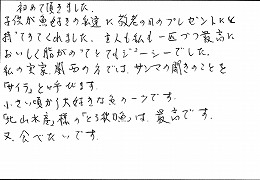 初めて頂きました。
子供が魚好きの私達に敬老の日のプレゼントにと
持ってきてくれました。主人も私も一匹づつ最高に
おいしく脂がのってとてもジューシーでした。
私の実家、関西の方では、サンマの開きのことを
「サイラ」と呼びます。
小さい頃から大好きな魚の一つです。
「北山水産」様の「とろ秋刀魚」は、最高です。
又、食べたいです。